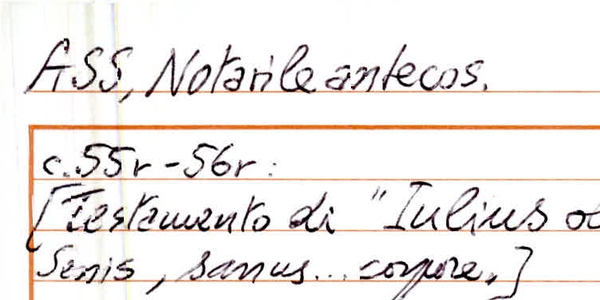 ASS, Notarile antecos.
c. 55r - 56r:
[Testamento di "Iulius
Senis, sanus... corpore.]